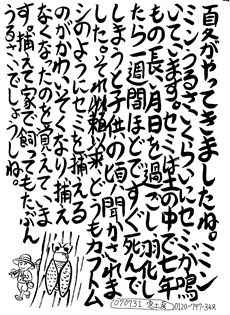 夏がやってきましたね。ミン
ミンうるさいくらいにセミが鳴
いています。セミは土の中で七年
もの長い月日を過ごし、羽化し
たら一週間ほどですぐ死んで
しまうと子供の頃に聞かされま
した。それ以来、どうもカブトム
シのようにセミを捕える
のがかわいそくなり捕え
なくなったのを覚えていま
す。捕えて家で飼ってもたぶん
うるさいでしょうしね。
070731
0120-797-348